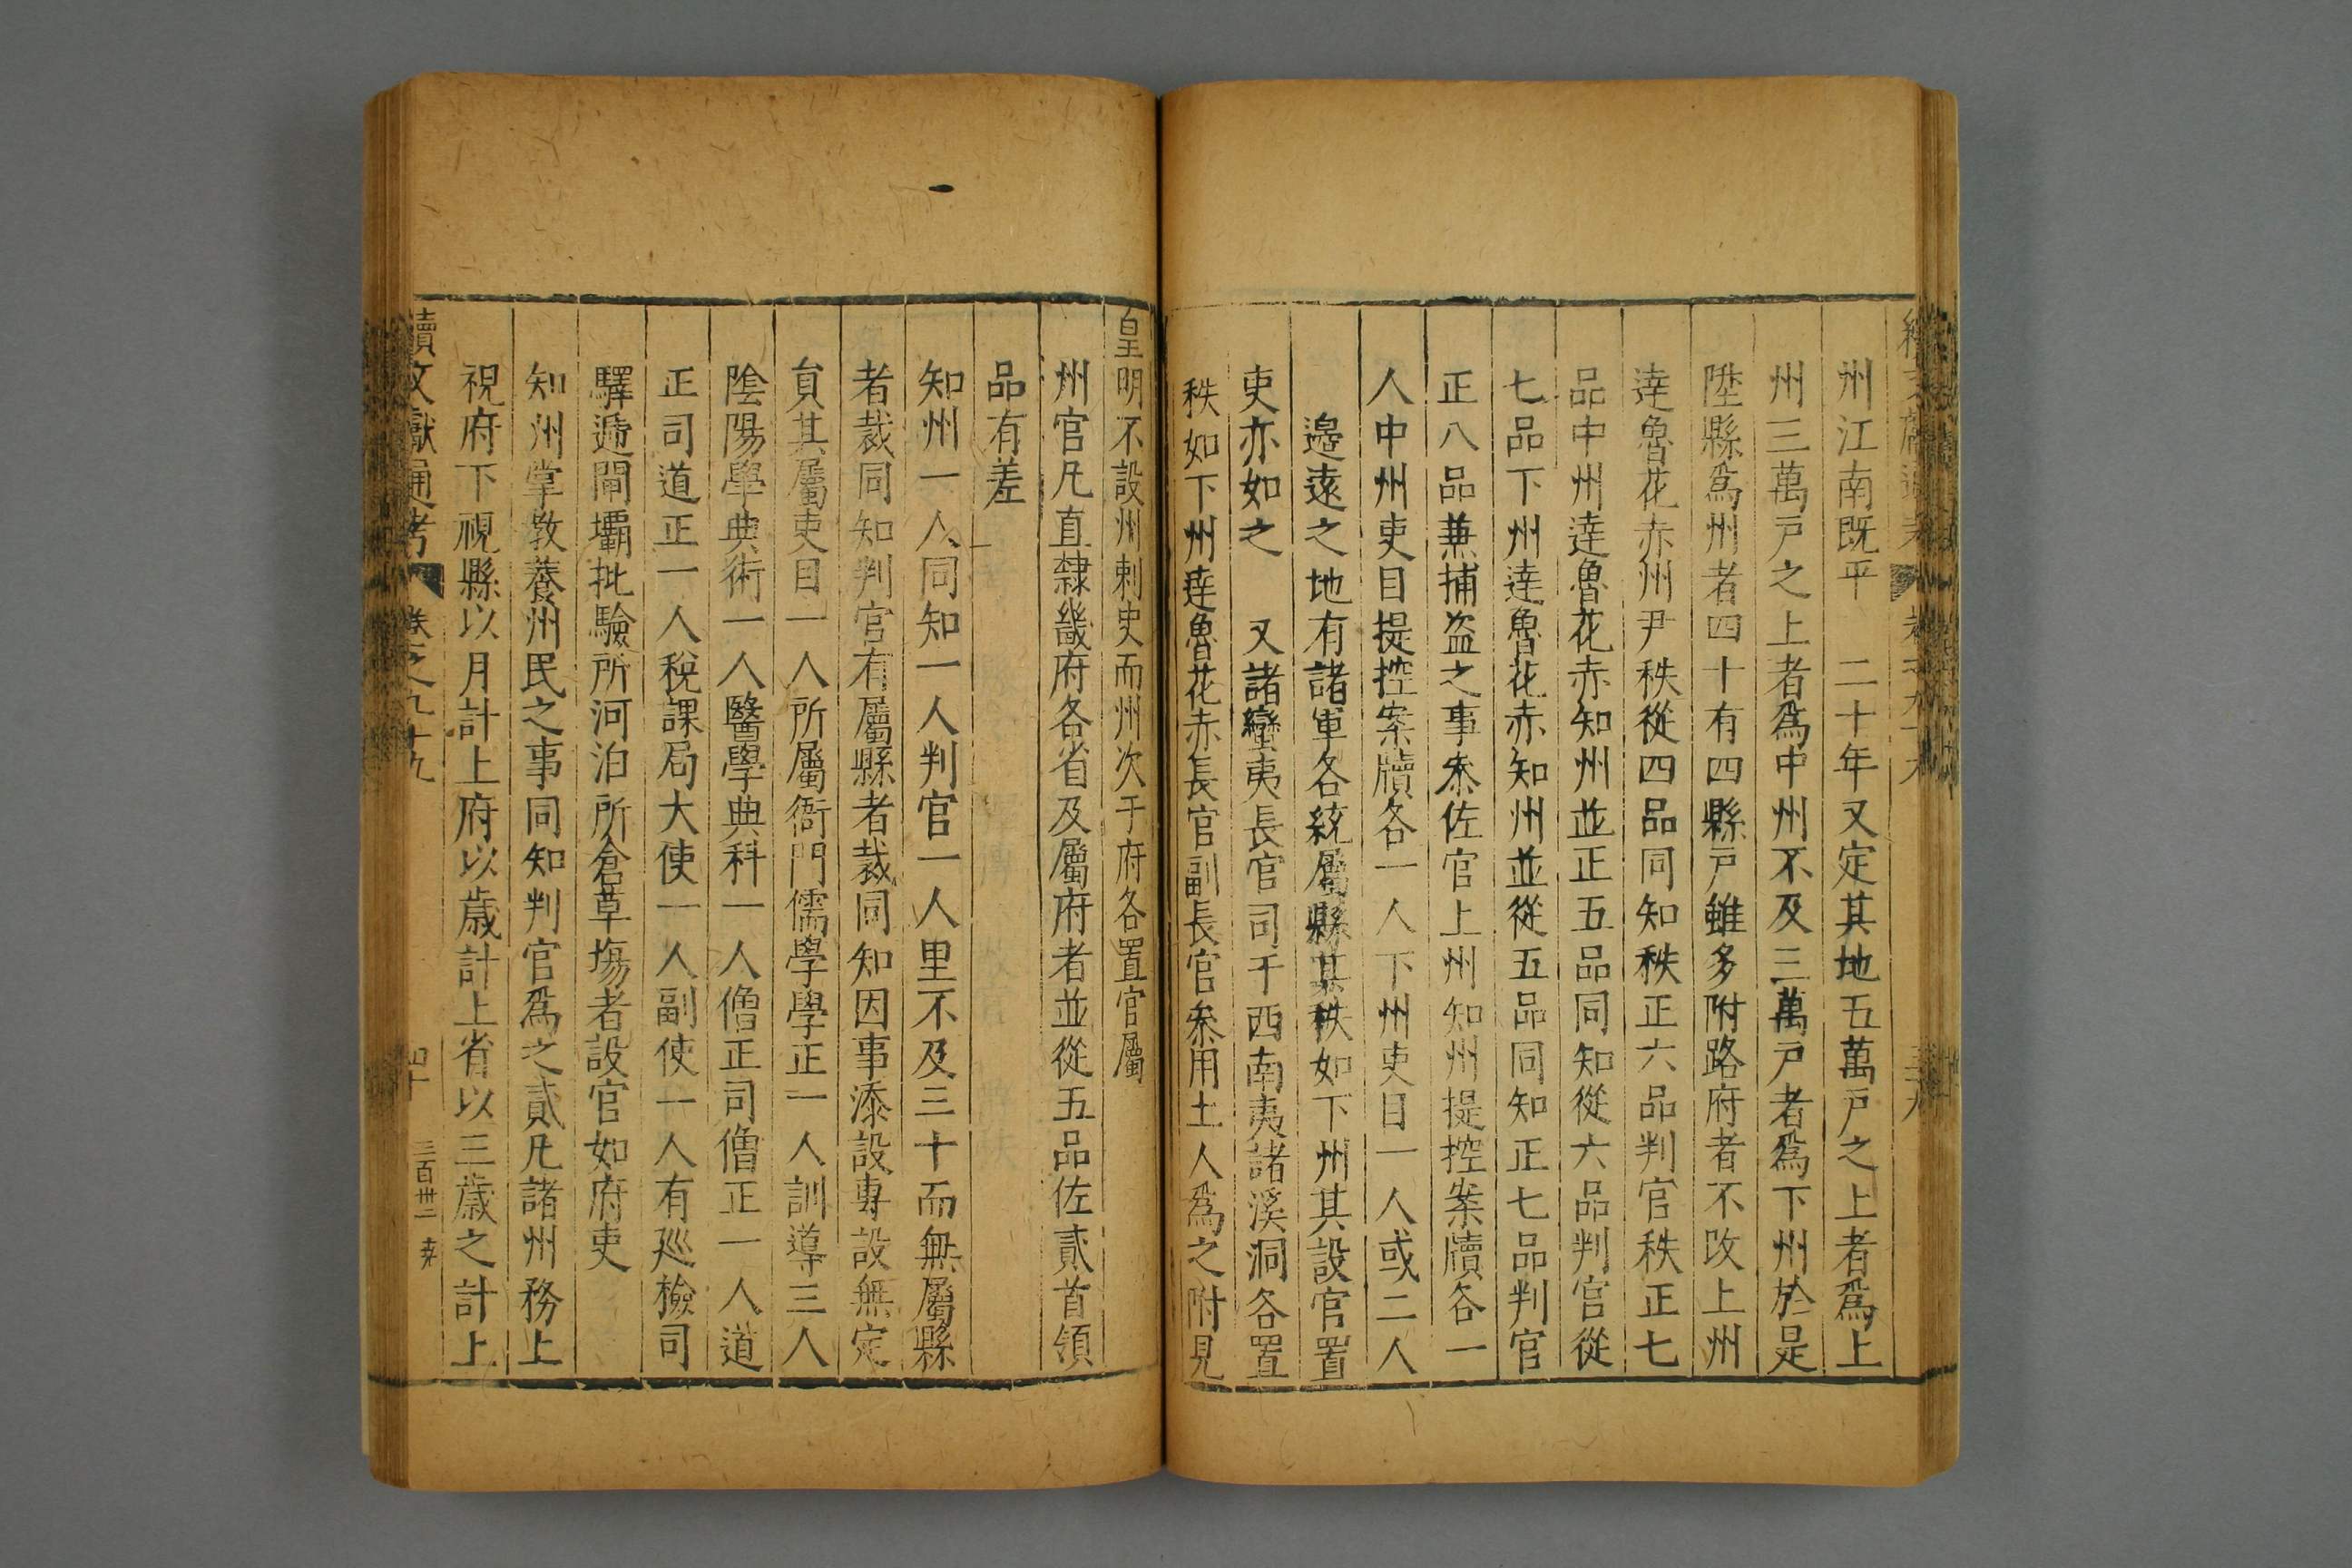 州江南既平　二十年又定其地五萬戸之上者爲上
州三萬戸之上者爲中州不及三萬戸者爲下州於是
陞縣爲州者四十有四縣戸雖多附路府者不改上州
達魯花赤州尹秩從四品同知秩正六品判官秩正七
品中州達魯花赤知州並正五品同知從六品判官從
七品下州達魯花赤知州並從五品同知正七品判官
正八品兼捕盗之事叅佐官上州知州提控案牘各一
人中州吏目提控案牘各一人下州吏目一人或二人
邉遠之地有諸軍各統屬縣其秩如下州其設官置
吏亦如之　又諸蠻夷長官司千西南夷諸溪洞各置
秩如下州逹魯花赤長官副長官叅用土人爲之附見
皇明不設州剌史而州次于府各置官屬
州官凡直隸畿府各省及屬府者並從五品佐貳首領
品有差
知州一人同知一人判官一人里不及三十而無屬縣
者裁同知判官有屬縣者裁同知因事添設專設無定
貟其屬吏目一人所屬衙門儒學學正一人訓導三人
陰陽學典術一人醫學典科一人僧正司僧正一人道
正司道正一人稅課局大使一人副使一人有廵檢司
驛遞閘壩批驗所河泊所倉草塲者設官如府吏
知州掌教養州民之事同知判官爲之貳凡諸州務上
視府下視縣以月計上府以歲計上省以三歲之計上
續文獻通考　卷之九十九　四十　三百卅二